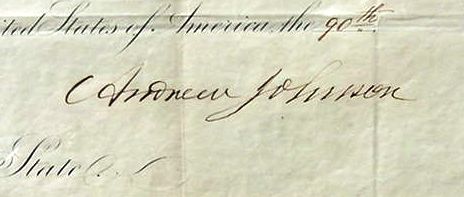 ited States of America, the 90th.
Andrew Johnson
State